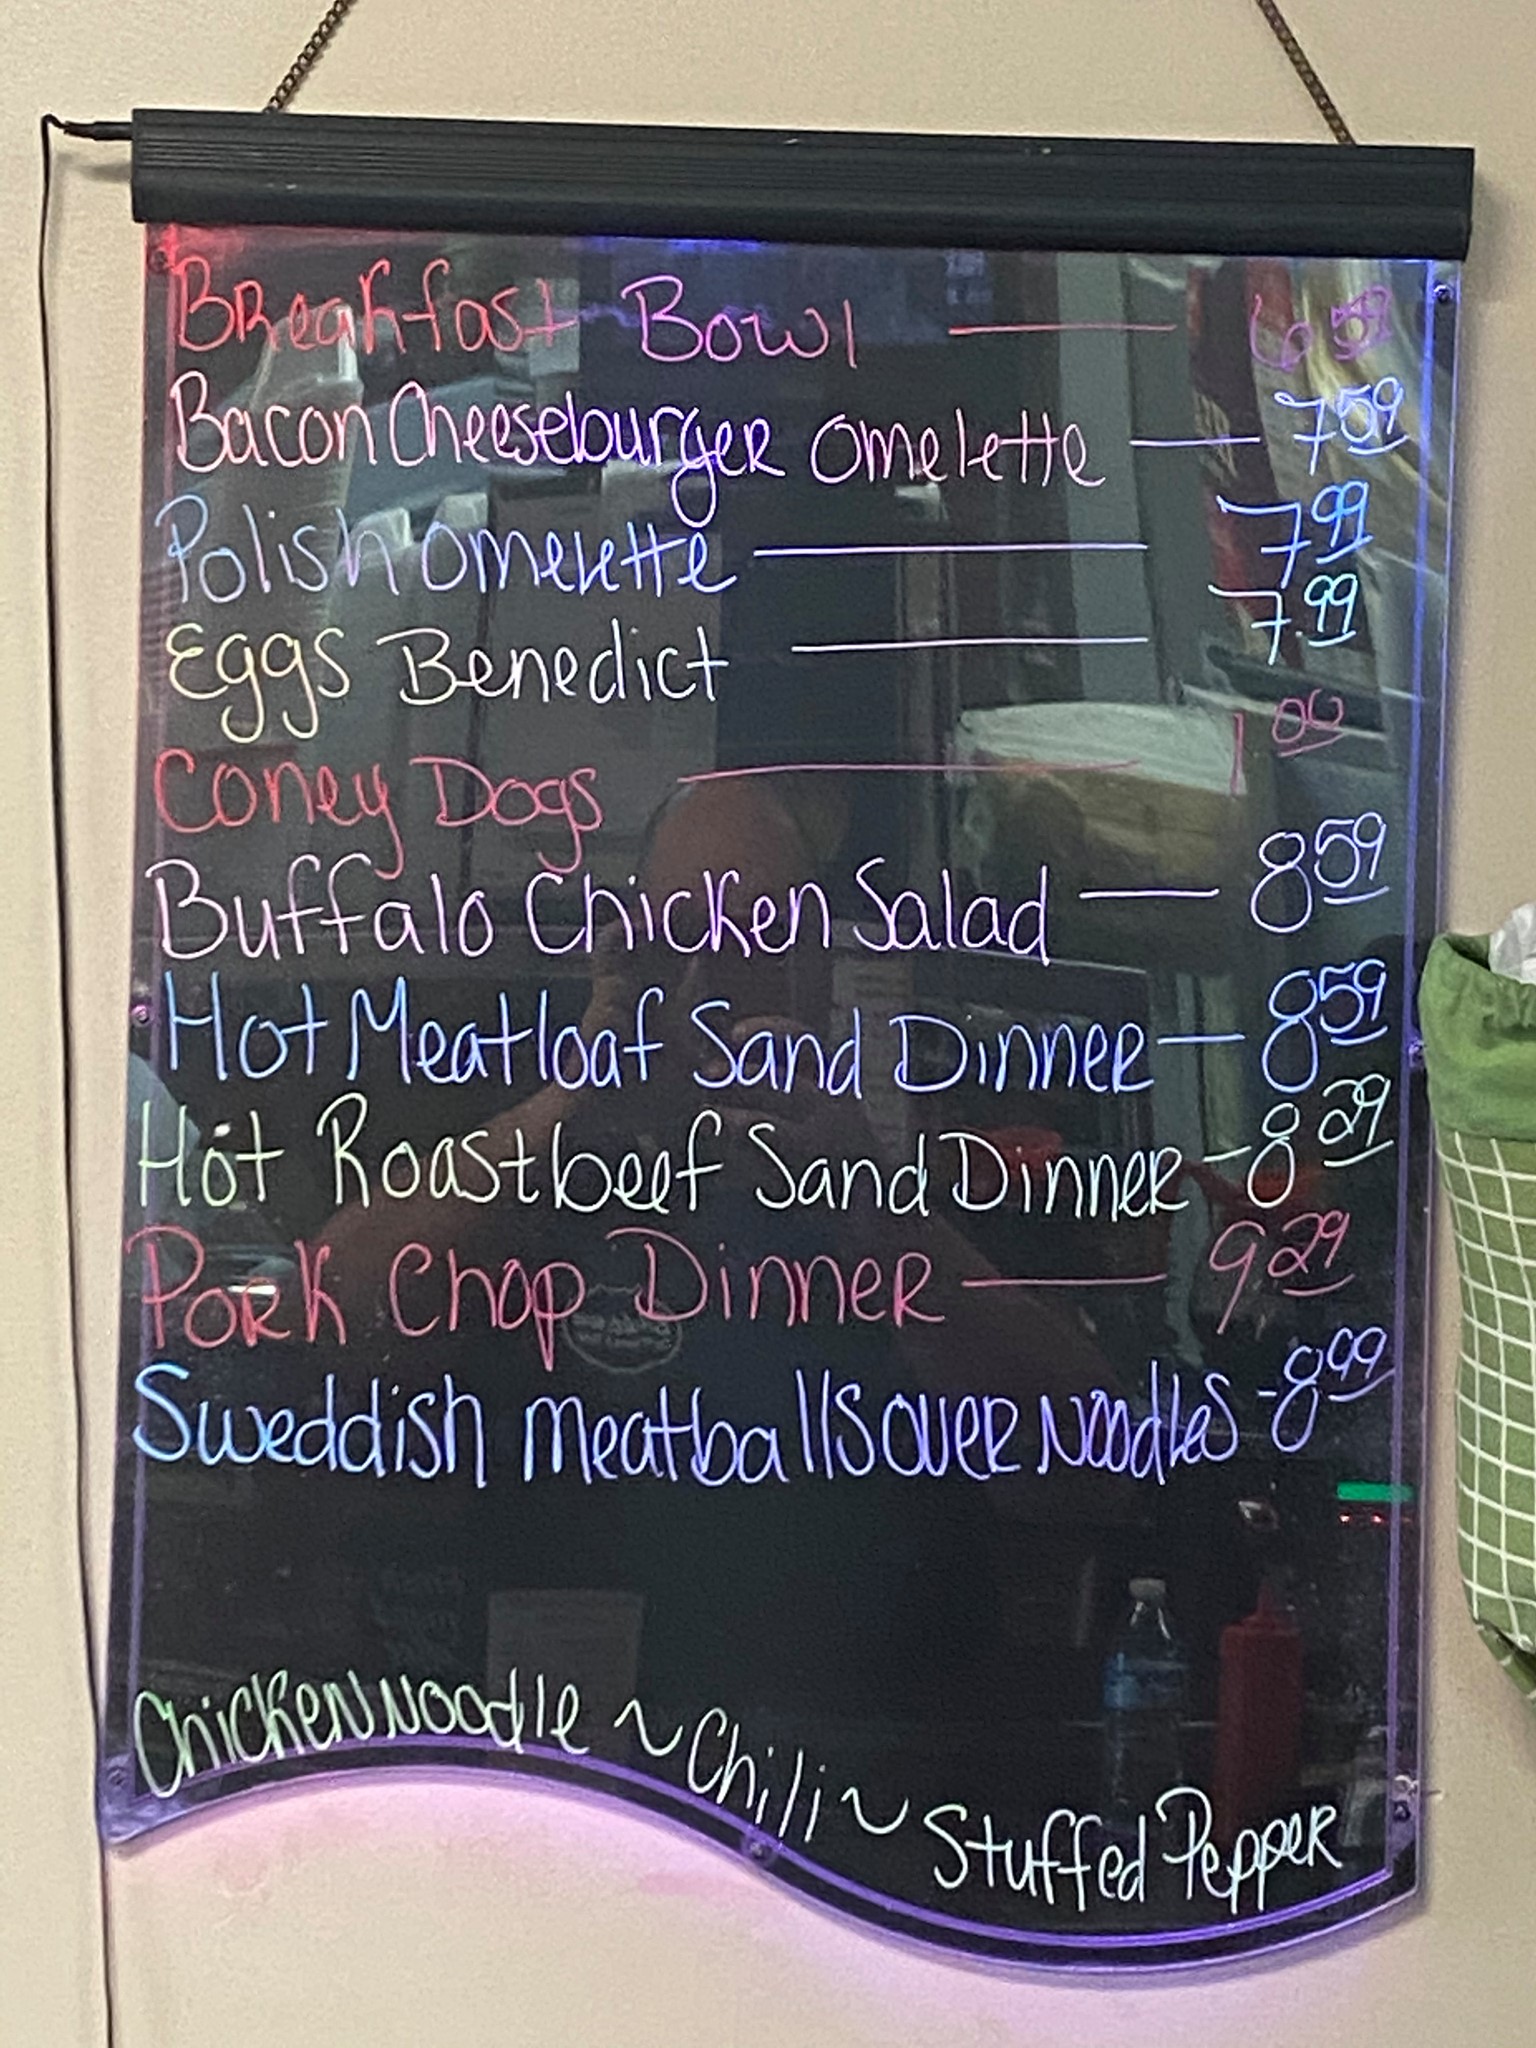 Breakfast Bowl — 6.59
Bacon Cheeseburger Omelette — 7.59
Polish Omelette — 7.99
Eggs Benedict — 7.99
Coney Dogs — 1.00
Buffalo Chicken Salad — 8.59
Hot Meatloaf Sand Dinner — 8.59
Hot Roastbeef Sand Dinner - 8.29
Pork Chop Dinner — 9.29
Sweddish Meatballs over Noodles - 8.99
Chicken Noodle ~ Chili ~ Stuffed Pepper